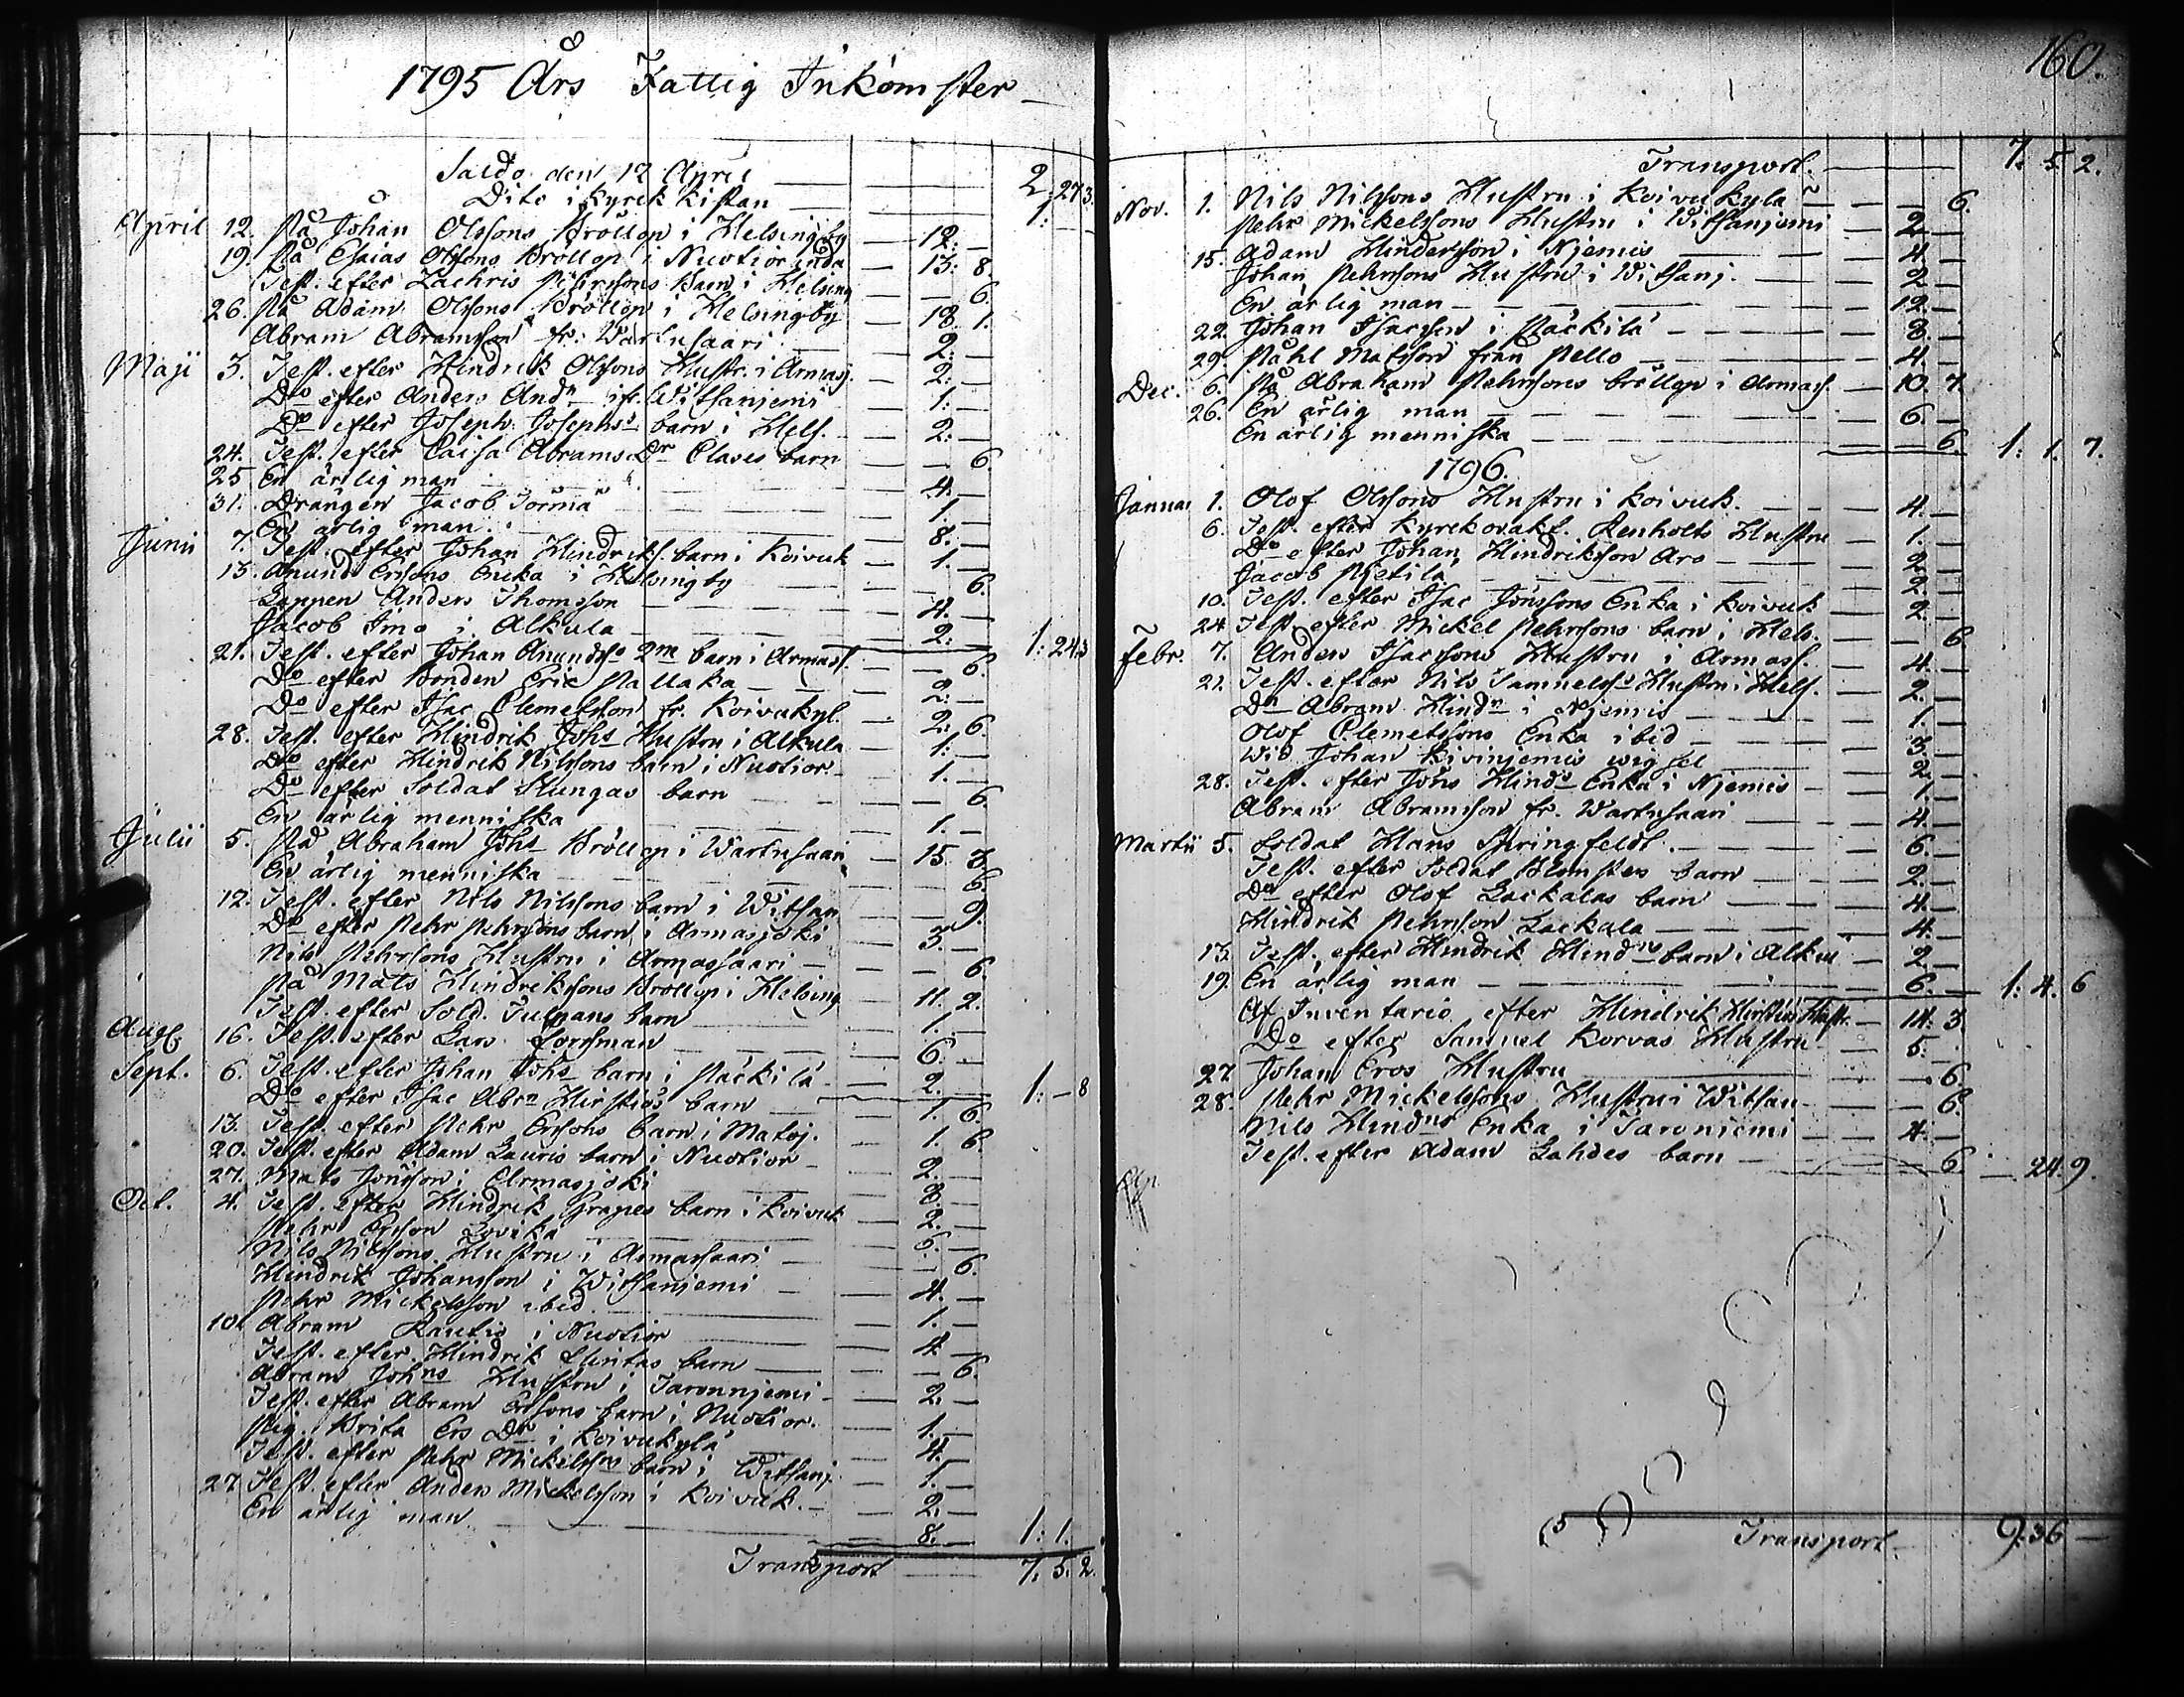 1795 Års Fattig Inkomster
Saldo den 12 April — 2: 27 3.
Dito i Kyrck Kistan — 1: —
April 12. På Johan Olssons Bröllop i Helsingby — 12: —
19. På Esaias Olssons Bröllop i Nuotioranda — 13: 8.
Test. efter Zachris Pehrssons barn i Helsing — 6.
26. På Adam Olssons Bröllop i Helsingby — 18. 1.
Abram Abramsson fr. Wartusaari — 2: —
Maji 3. Test. efter Hindrik Olssons Hustr. i Armass. — 2: —
Do efter Anders Andn ifr. Witsanjemi — 1: —
Do efter Joseph Josephss barn i Hels. — 2: —
24. Test. efter Caisa Abrams Dr Claves barn — 6.
25 En ärlig man — 4. —
31. Drängen Jacob Jorma — 1. —
En ärlig man — 8. —
Junii 7. Test. efter Johan Hindrikss. barn i Koivuk — 1. —
13. Anund Erssons Enka i Helsingby — 6.
Lappen Anders Thomsson — 4. —
Jacob Imo i Alkula — 2: — 1: 24.3
21. Test. efter Johan Anundsss 2ne barn i Armass. — 6.
Do efter Bonden Eric Pallaka — 2: —
Do efter Isac Clemetsson fr. Koivukyl. — 2: 6.
28. Test. efter Hindrik Johs Hustru i Alkula — 1: —
Do efter Hindrik Nilssons barn i Nuotior. — 1. —
Do efter Soldat Slungas barn — 6.
En ärlig menniska — 1. —
Julii 5. På Abraham Johs Bröllop i Wartusaari — 15. 3.
En ärlig menniska — 6.
12. Test. efter Nils Nilssons barn i Witsan — 9.
Do efter Pehr Pehrssons barn i Armasjoki — 3. —
Nils Pehrssons Hustru i Armassaari — 6.
På Mats Hindrikssons Bröllop i Helsing — 11. 2.
Test. efter Sold. Tulpans barn — 1. —
Aug. 16. Test. efter Lars Forssman — 6. —
Sept. 6. Test. efter Johan Johs barn i Päckilä — 2. — 1: — 8
Do efter Isac Abrn Hirstiös barn — 1. 6.
13. Test. efter Pehr Erssons barn i Matoj. — 1. 6.
20. Test. efter Adam Lauris barn i Nuotior — 2. —
27. Mats Jönsson i Armasjoki — 8. —
Oct. 4. Test. efter Hindrik Grapes barn i Koivuk — 2. —
Pehr Ersson Lovika — 6. —
Nils Nilssons Hustru i Armassaari — 6.
Hindrik Johansson i Witsanjemi — 4. —
Pehr Mickelsson ibid. — 1. —
10. Abram Rautio i Nuotior — 4. —
Test. efter Hindrik Flintas barn — 6.
Abram Johns Hustru i Taronnjemi — 2. —
Test. efter Abram Erssons barn i Nuotior. — 1. —
Pig. Brita Ers Dr i Koivukylä — 4. —
Test. efter Pehr Mickelssns barn i Witsanj. — 1. —
27 Test. efter Anders Mickelsson i Koivuk. — 2. —
En ärlig man — 8. — 1: 1.
Transport — 7. 5. 2.
160.
Transport. — 7. 5 2.
Nov. 1. Nils Nilssons Hustru i Koivukyla — 6.
Pehr Mickelssons Hustru i Witsanjemi — 2. —
15. Adam Hindersson i Njemis — 4. —
Johan Pehrssons Hustru i Witsanj. — 2. —
En ärlig man — 12. —
22. Johan Isacsson i Päckilä — 8. —
29. Påhl Matsson från Pello — 4. —
Dec. 6. På Abraham Pehrssons bröllop i Armass. — 10. 7.
26. En ärlig man — 6. —
En ärlig menniska — 6. 1: 1. 7.
1796.
Januar 1. Olof Olssons Hustru i Koivuk. — 4. —
6. Test. efter Kyrckovakt. Renholts Hustru — 1. —
Do efter Johan Hindriksson Aro — 2. —
Jacob Pietilä — 2. —
10. Test. efter Isac Jönssons Enka i Koivuk — 2. —
24. Test. efter Mickel Pehrssons barn i Hels. — 6.
Febr. 7. Anders Isacssons Hustru i Armass. — 4. —
21. Test. efter Nils Samuelsss Hustru i Hels. — 2. —
Do Abram Hindn i Njemis — 1. —
Olof Clemetssons Enka ibid — 3. —
Wid Johan Kivinjemis wigsel — 2. —
28. Test. efter Jöns Hinds Enka i Njemis — 1. —
Abram Abramsson fr. Wartusaari — 4. —
Martii 5. Soldat Hans Springfeldt. — 6. —
Test. efter Soldat Blomsters barn — 2. —
Do efter Olof Lackalas barn — 4. —
Hindrik Pehrsson Lackala — 4. —
13. Test. efter Hindrik Hindns barn i Alkul — 2. —
19. En ärlig man — 6. — 1: 4. 6
Af Inventario efter Hindrik Hirstiös Hustr. — 14. 3.
Do efter Samuel Korvas Hustru — 5. —
27 Johan Eros Hustru — 6.
28. Pehr Mickelssons Hustru i Witsan — 6.
Nils Hindns Enka i Taroniemi — 4. —
Test. efter Adam Lahdes barn — 6. — 24. 9.
Transport. 9: 36 —